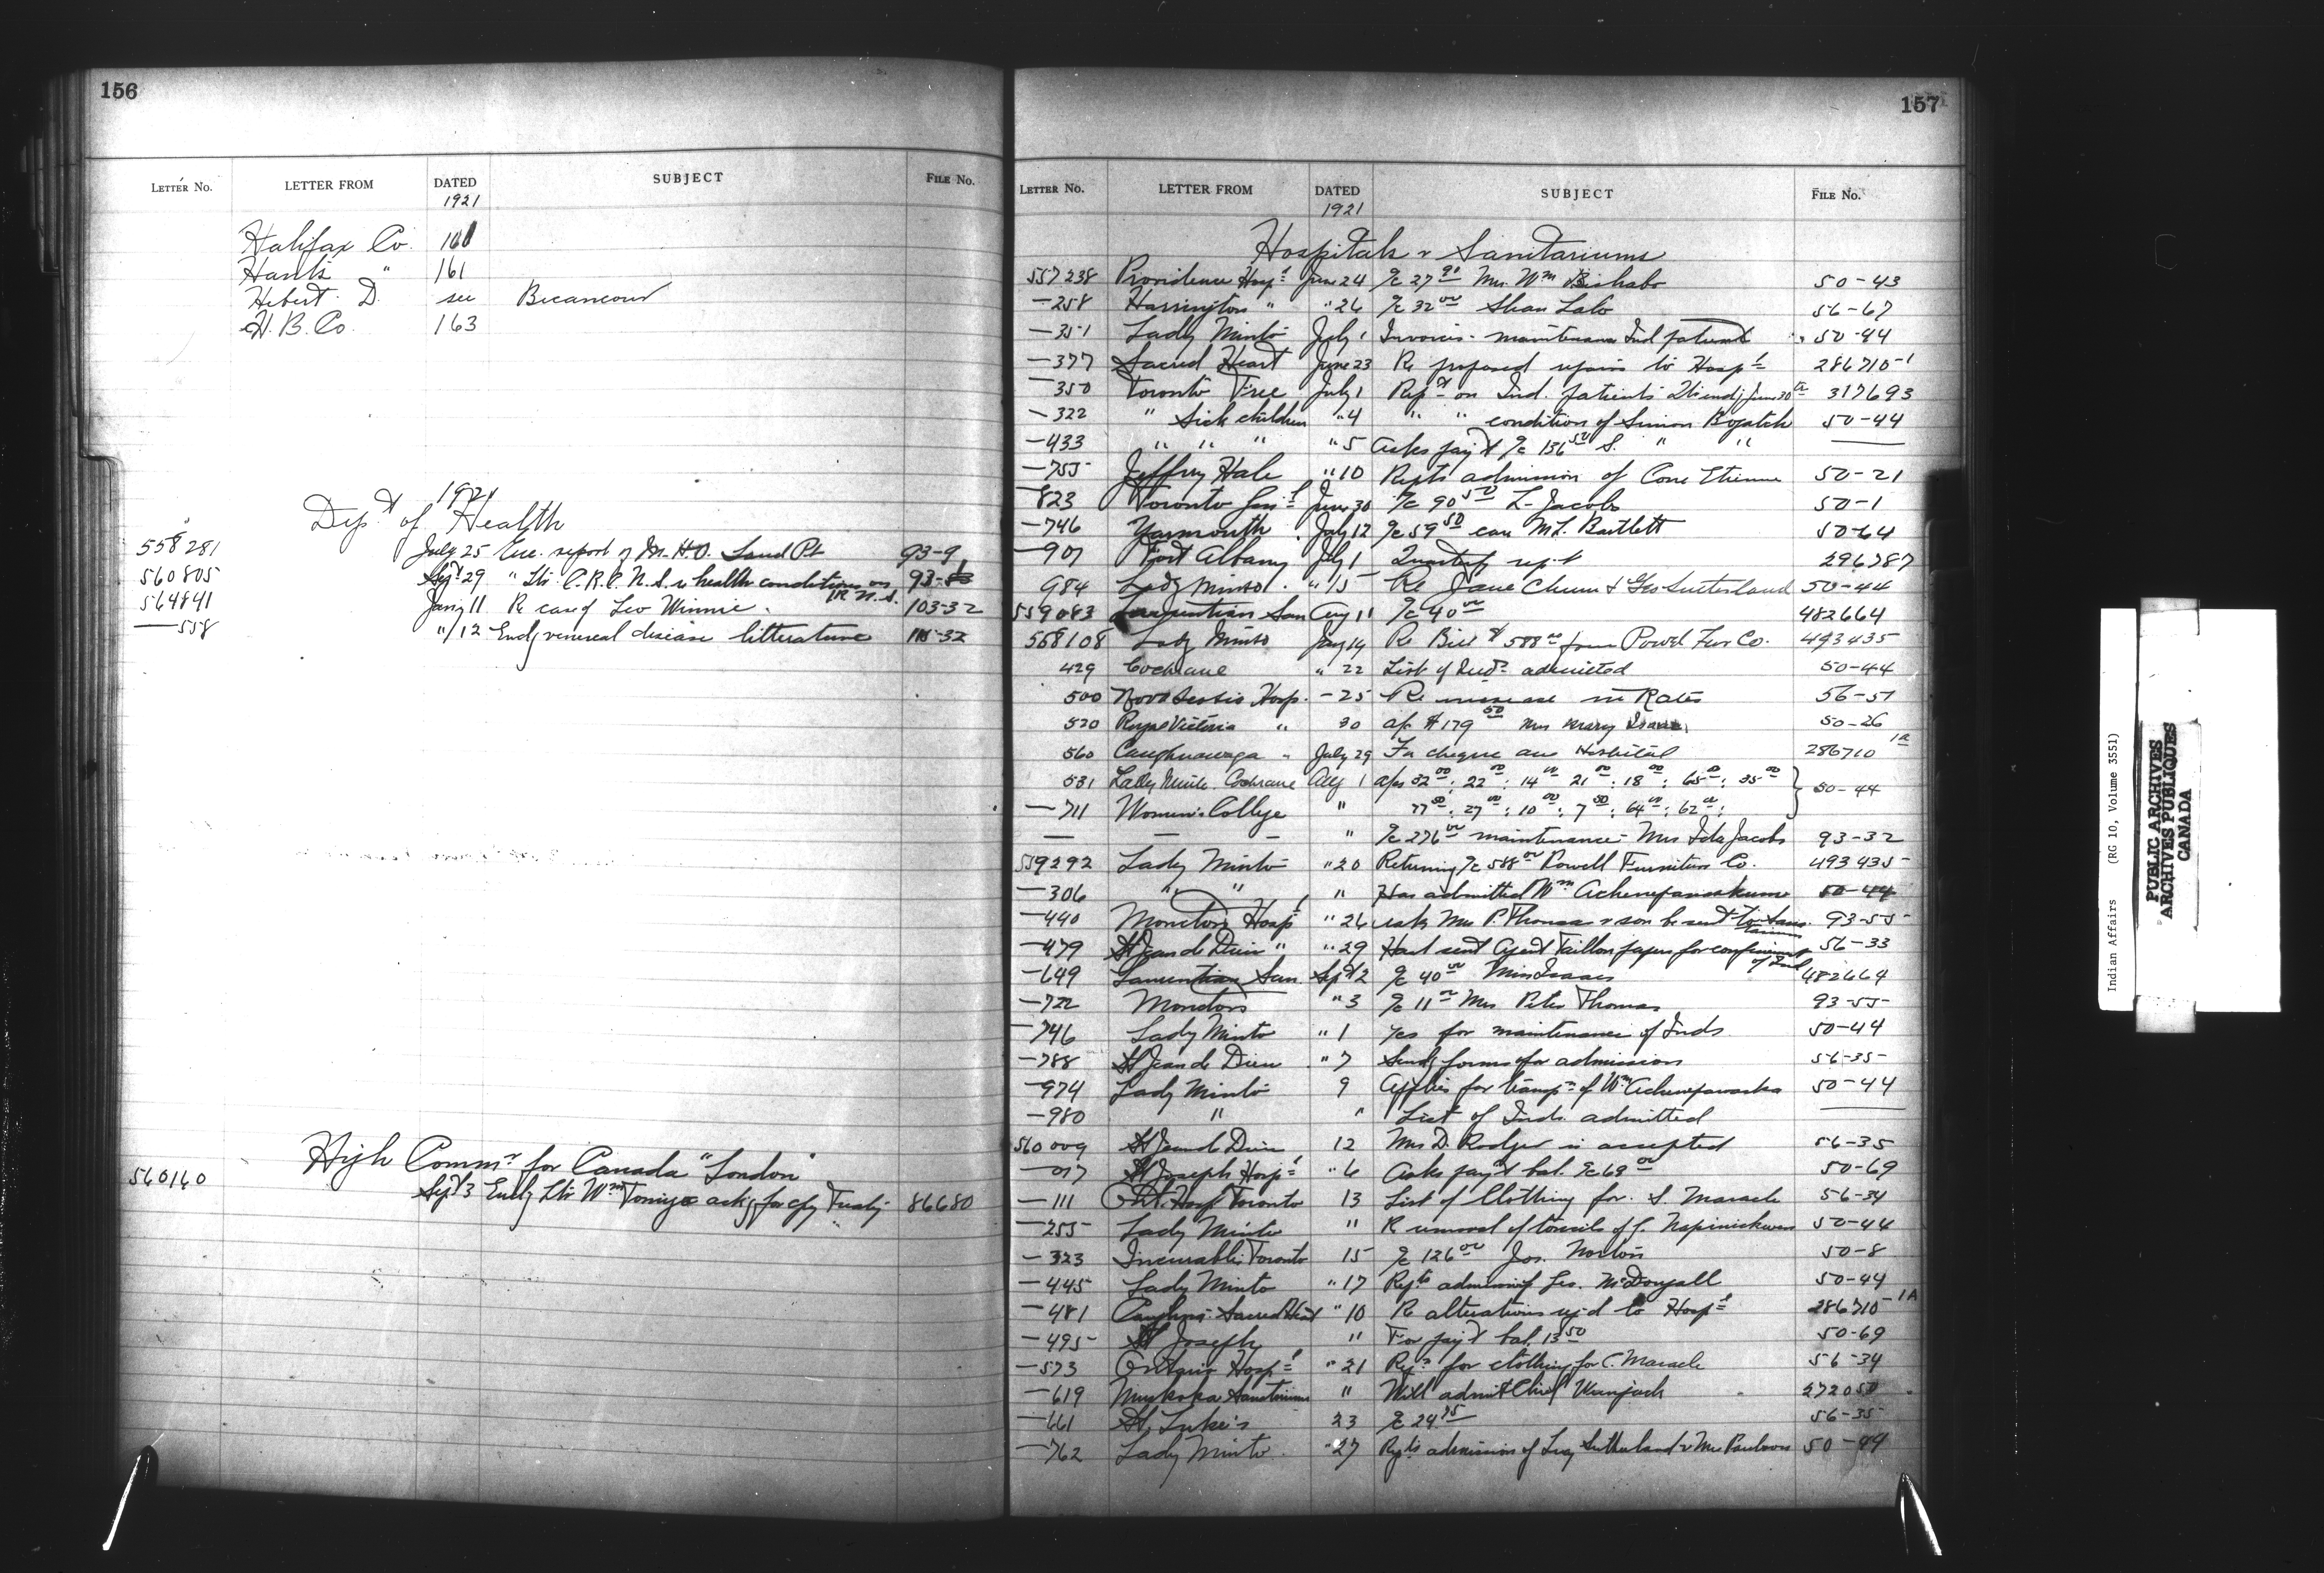 156
LETTER No. LETTER FROM DATED SUBJECT FILE No.
1921
Halifax Co. 161
Hants " 161
Hebert D. see Becancour
H. B. Co. 163
1921
Dept of Health
558281 July 25 Enc. report of M.H.O. Sand Pt 93-9
560805 Sept 29 " ltr. health conditions on IR N.S. 93-
564841 Jany 11 Re case of Leo Winnie. 103-32
—558 " 12 Encl venereal disease litterature 115-32
High Commr for Canada "London"
560160 Sept 3 Encl ltr Wm ackg for cpy Treaty 86680
157
LETTER No. LETTER FROM DATED SUBJECT FILE No.
1921
Hospitals & Sanitariums
557238 Providence Hospl June 24 a/c 27 Mrs. Wm 50-43
—258 Harrington " " 26 a/c 32 00 56-67
—351 Lady Minto July 1 Invoices - maintenance Ind patients 50-44
—377 Sacred Heart June 23 Re proposed repairs to Hospl 286710-1
—350 Toronto Free July 1 Rept on Ind. patients endg June 30th 317693
—322 " Sick children " 4 " " condition of Simon 50-44
—433 " " " " 5 Asks payt a/c 136 50 S. " "
—755 Jeffrey Hale " 10 Repts admission of Etienne 50-21
823 Toronto Genl June 30 a/c 90 50 L. Jacobs 50-1
—746 Yarmouth July 12 a/c 59 50 care M.L. Bartlett 50-64
—907 Fort Albany July 1 Quarterly rept 296787
984 Lady Minto " 15 Re Jane Chum & Geo Sutherland 50-44
559083 Laurentian San Aug 11 a/c 40 00 482664
558108 Lady Minto July 14 Re Bill $588 00 from Powell Fur Co. 493435
429 Cochrane " 22 List of Inds admitted 50-44
500 Nova Scotia Hosp. - 25 Re increase in Rates 56-57
530 Royal Victoria " 30 a/c $179 50 Mrs Mary 50-26
560 Caughnawaga " July 29 For cheque a/c Hospital 286710 1A
531 Lady Minto Cochrane Aug 1 a/cs 32 00; 22 00; 14 00 21 00; 18 00; 65 00; 35 00 50-44
—711 Women's College " 77 50; 27 00; 10 00; 7 50; 64 00; 62 00;
— — — " a/c 276 00 maintenance - Mrs Ida Jacobs 93-32
559292 Lady Minto " 20 Returning a/c 588 00 Powell Furniture Co. 493435
—306 " " " Has admitted Wm 50-44
—440 Moncton Hospl " 26 asks Mrs P. Thomas & son be sent to 93-55
—479 St Jean de Dieu " " 29 Hast sent Agent Taillon papers for 56-33
—649 Laurentian San. Sept 2 a/c 40 00 Miss Isaacs 482664
—722 Moncton " 3 a/c 11 00 Mrs Peter Thomas 93-55
—746 Lady Minto " 1 for maintenance of Inds 50-44
—788 St Jean de Dieu " 7 Sendg forms for admission 56-35
—974 Lady Minto 9 Applies for transpn of Wm 50-44
—980 " " List of Inds. admitted
560009 St Jean de Dieu 12 Mrs D. Rodger is accepted 56-35
—017 St Joseph Hospl " 6 Asks payt bal. a/c 68 00 50-69
—111 Ont. Hosp Toronto 13 List of Clothing for S. Maracle 56-34
—255 Lady Minto " Re removal of tonsils of 50-44
—323 Incurables Toronto 15 a/c 126 00 Jos. Norton 50-8
—445 Lady Minto " 17 Repts admission of Geo. McDougall 50-44
—481 Caughna- Sacred Heart " 10 Re alterations reqd to Hospl 286710-1A
—495 St Joseph " For payt bal. 13 50 50-69
—573 Ontario Hospl " 21 Reqn for clothing for C. Maracle 56-34
—619 Muskoka Sanitarium " Will admit Chief 272050
—661 St. Luke's 23 a/c 24 75 56-35
—762 Lady Minto " 27 Repts admission of Lucy Sutherland & Mrs 50-44
Indian Affairs (RG 10, Volume 3551)
PUBLIC ARCHIVES
ARCHIVES PUBLIQUES
CANADA